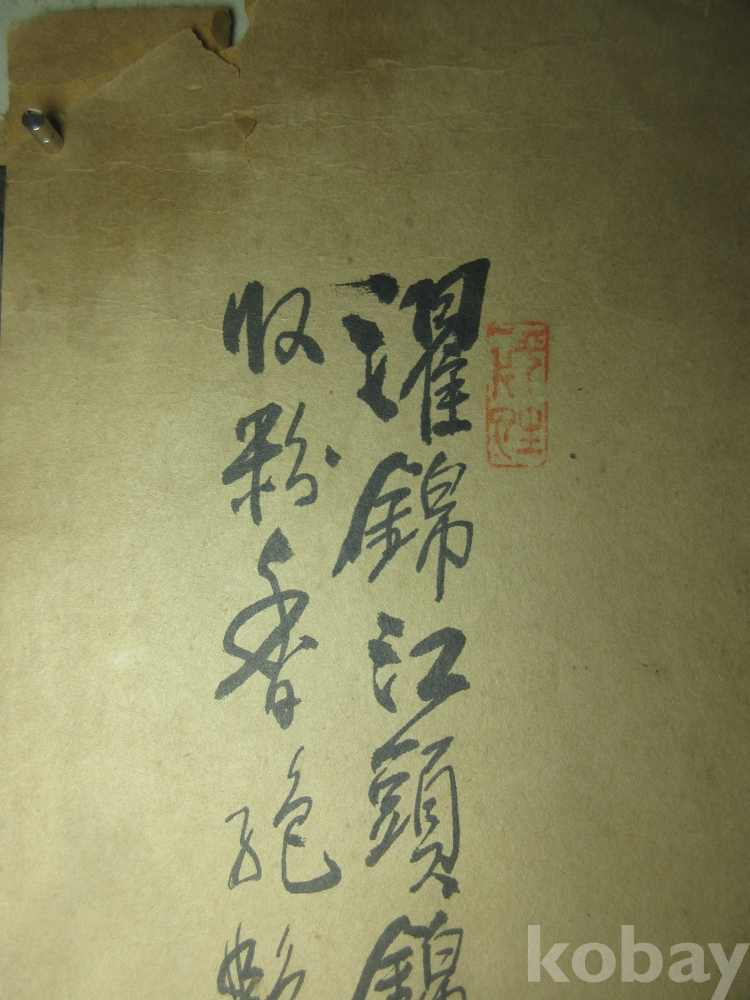 濯錦江頭錦
收粉香絶艶
kobay